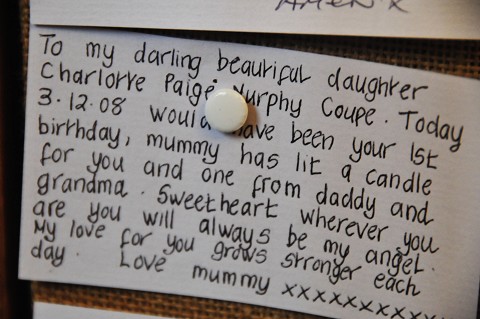 AMEN X
To my darling beautiful daughter
Charlotte Paige Murphy Coupe. Today
3.12.08 would have been your 1st
birthday, mummy has lit a candle
for you and one from daddy and
grandma. Sweetheart wherever you
are you will always be my angel.
My love for you grows stronger each
day. Love mummy xxxxxxxxxxx